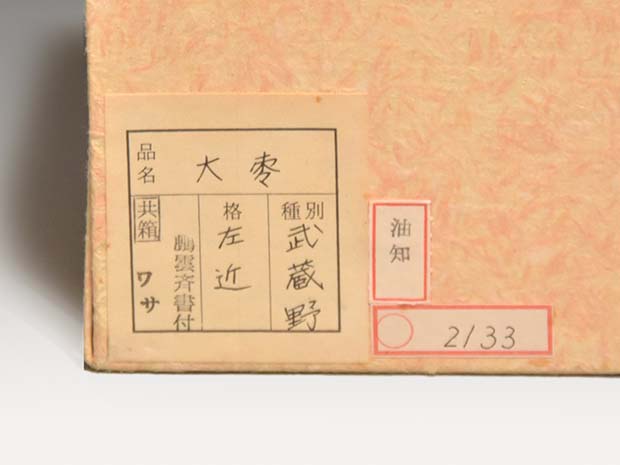 品名 大棗
種別 武蔵野
格 左近
鵬雲斉書付
共箱 ワサ
油知
2133